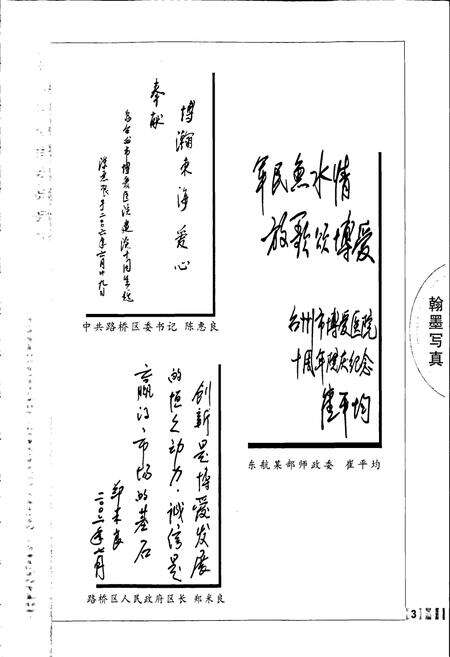 博瀚東海愛心
奉献
为台州市博爱医院建院十周年题
陈惠良于二〇〇六年六月廿九日
中共路桥区委书记 陈惠良
军民魚水情
放歌颂博爱
台州市博爱医院
十周年院庆纪念
崔平均
东航某部师政委 崔平均
创新是博愛发展
的恒久动力，诚信是
赢得市场的基石
郑米良
二〇〇六年七月
路桥区人民政府区长 郑米良
翰墨写真
3